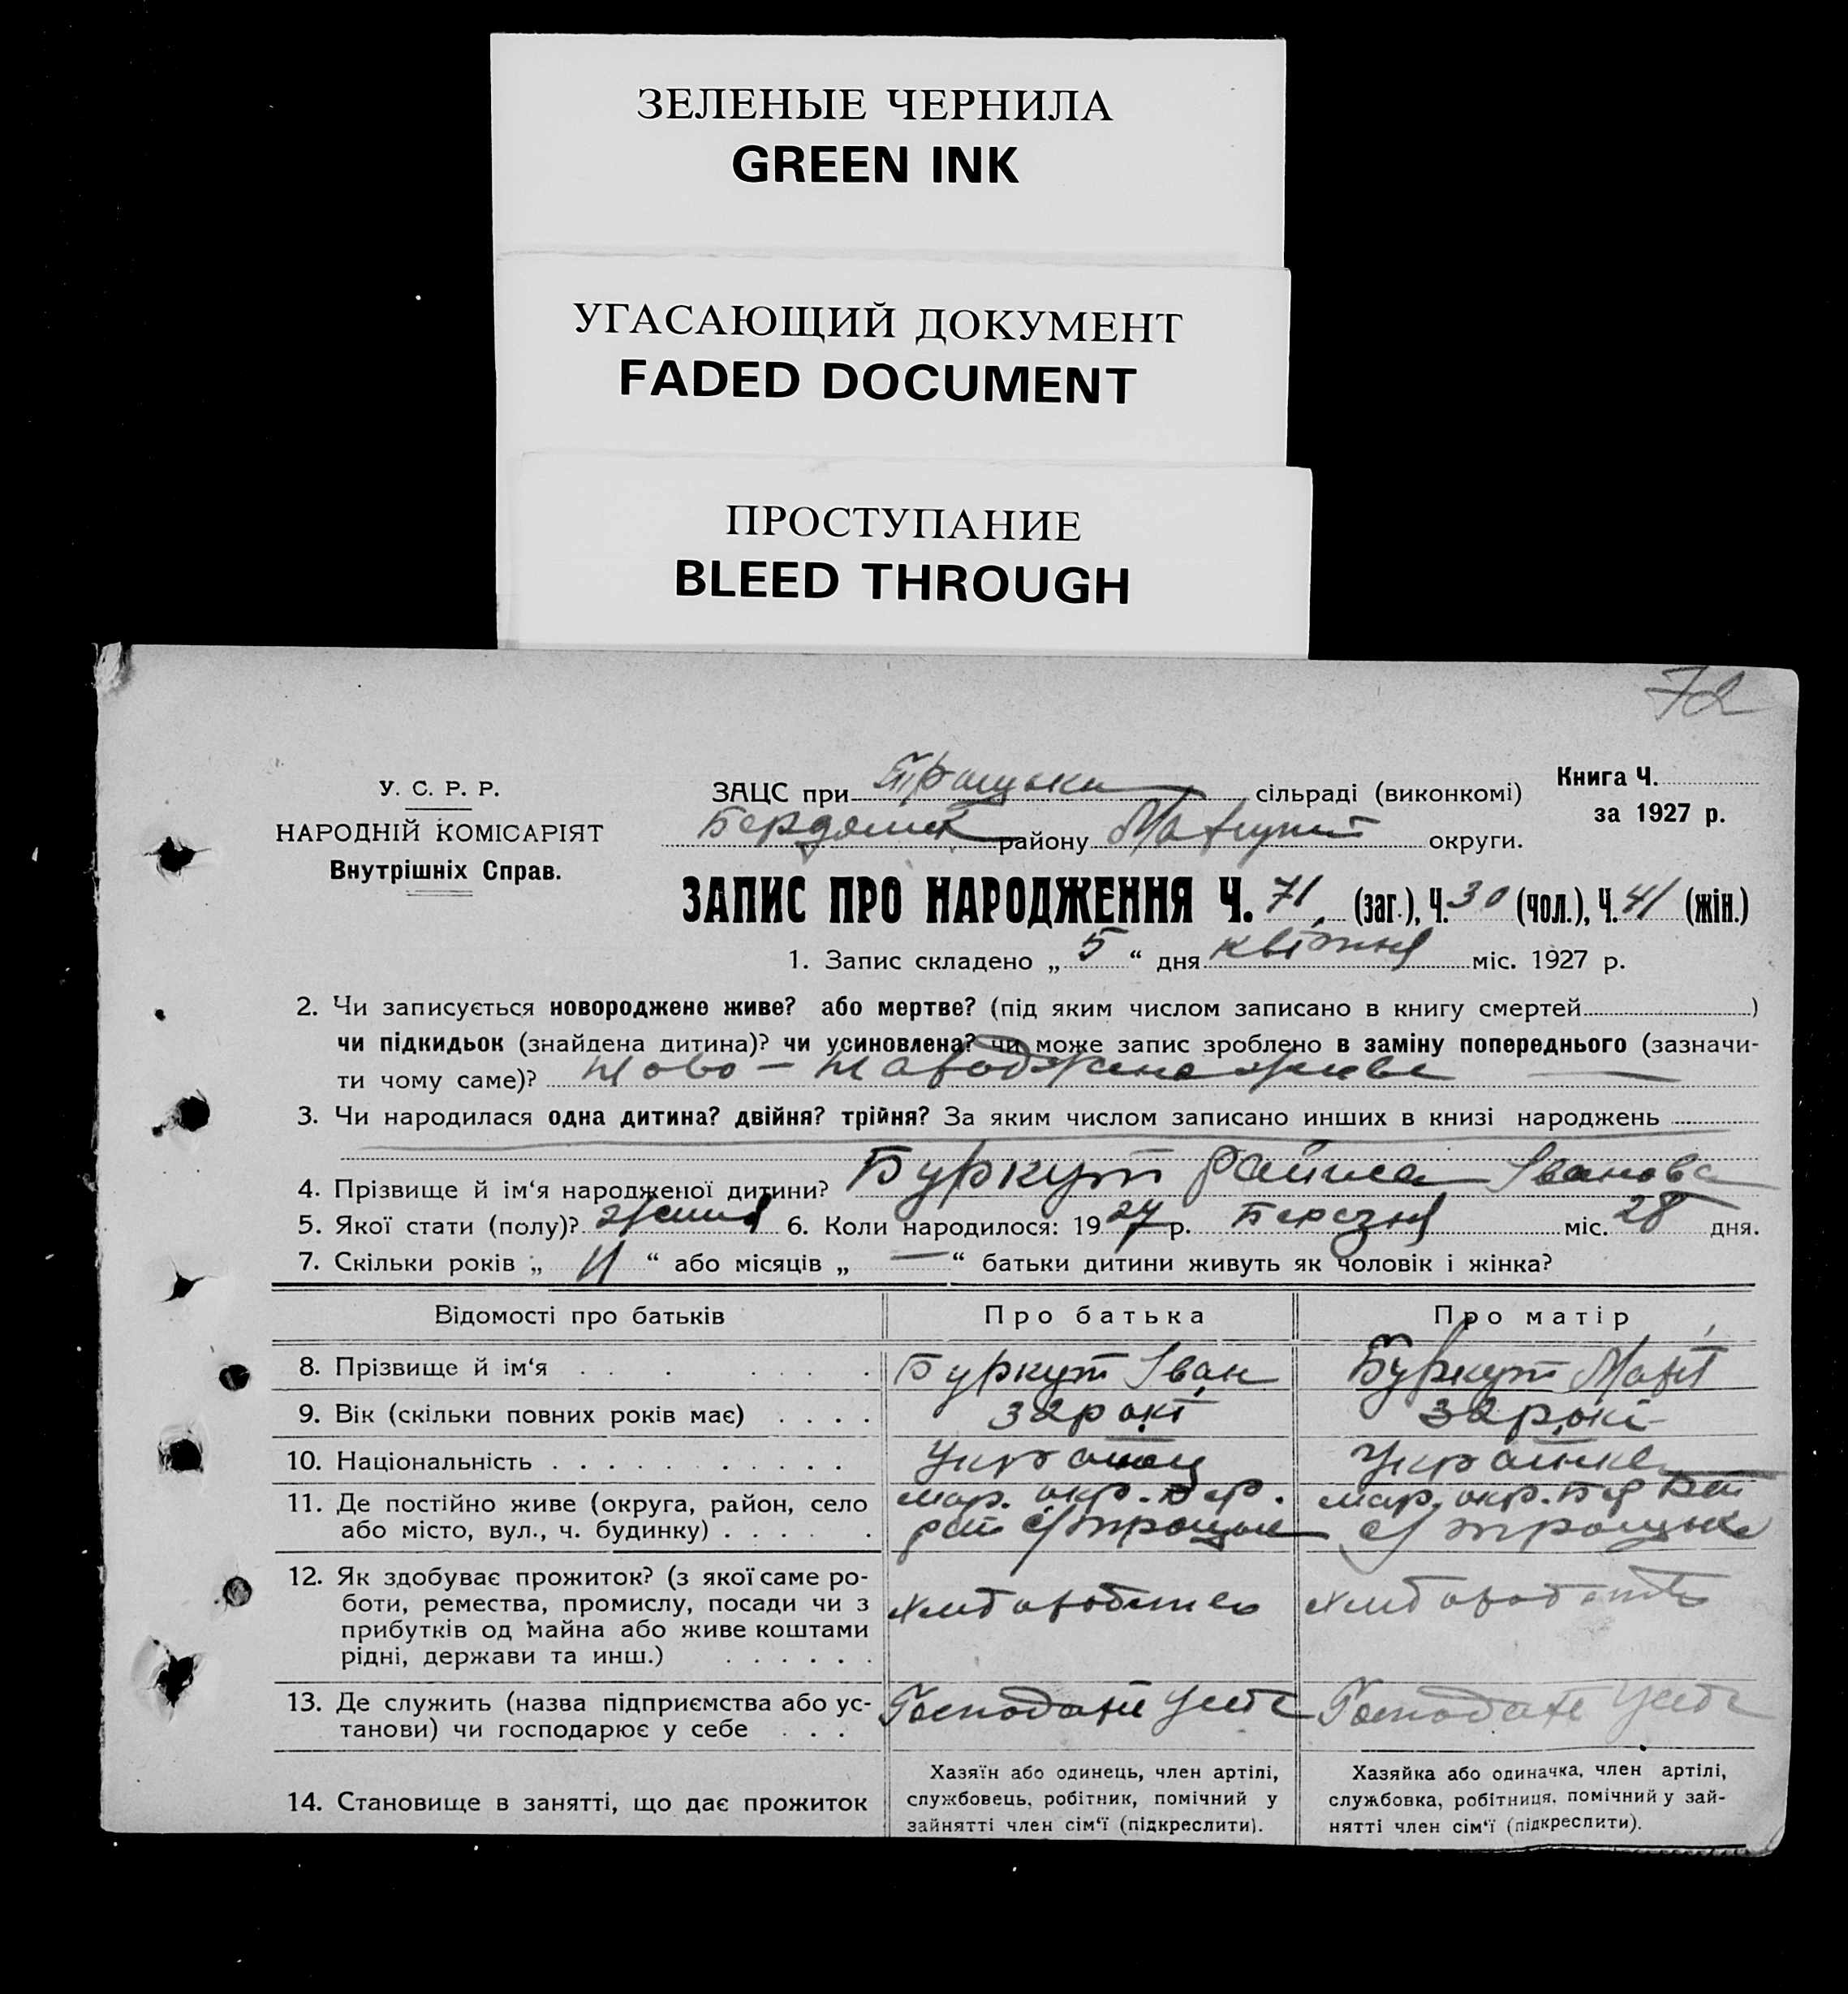 ЗЕЛЕНЫЕ ЧЕРНИЛА
GREEN INK
УГАСАЮЩИЙ ДОКУМЕНТ
FADED DOCUMENT
ПРОСТУПАНИЕ
BLEED THROUGH
72
У. С. Р. Р.
НАРОДНІЙ КОМІСАРІЯТ
Внутрішніх Справ.
ЗАЦС при Троцьки сільраді (виконкомі)
Книга Ч.
за 1927 р.
району округи.
ЗАПИС ПРО НАРОДЖЕННЯ Ч. 71 (заг.), Ч. 30 (чол.), Ч. 41 (жін.)
1. Запис складено „ 5 “ дня квітня міс. 1927 р.
2. Чи записується новороджене живе? або мертве? (під яким числом записано в книгу смертей )
чи підкидьок (знайдена дитина)? чи усиновлена? чи може запис зроблено в заміну попереднього (зазначи-
ти чому саме)? Ново-
3. Чи народилася одна дитина? двійня? трійня? За яким числом записано инших в книзі народжень
4. Прізвище й ім‘я народженої дитини? Буркут Раиса Іванова
5. Якої стати (полу)? 6. Коли народилося: 1927 р. Березня міс. 28 дня.
7. Скільки років „ 11 “ або місяців „ — “ батьки дитини живуть як чоловік і жінка?
Відомості про батьків Про батька Про матір
8. Прізвище й ім‘я Буркут Іван Буркут
9. Вік (скільки повних років має) 32 рокі 32 рокі
10. Національність Українец Українка
11. Де постійно живе (округа, район, село мар. окр. Бер. мар. окр. Бер
або місто, вул., ч. будинку) рай с/ с/
12. Як здобуває прожиток? (з якої саме ро-
боти, ремества, промислу, посади чи з
прибутків од майна або живе коштами
рідні, держави та инш.)
13. Де служить (назва підприємства або ус-
танови) чи господарює у себе
14. Становище в занятті, що дає прожиток
Хазяїн або одинець, член артілі,
службовець, робітник, помічний у
зайнятті член сім‘ї (підкреслити).
Хазяйка або одиначка, член артілі,
службовка, робітниця, помічний у зай-
нятті член сім‘ї (підкреслити).